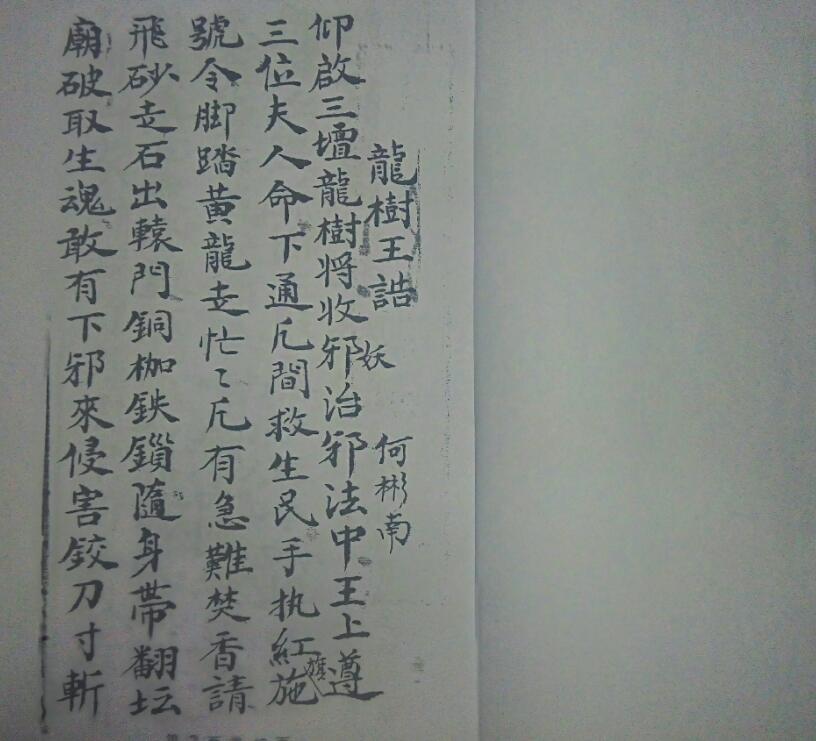 龍樹王誥 何彬南
仰啟三壇龍樹将收邪妖治邪法中王上遵
三位夫人命下通凢間救生民手执紅施旗
號令脚踏黄龍走忙〻凢有急難焚香請
飛砂走石出轅門銅枷鉄鎖隨身帶翻坛
廟破取生魂敢有下邪來侵害鉸刀寸斬